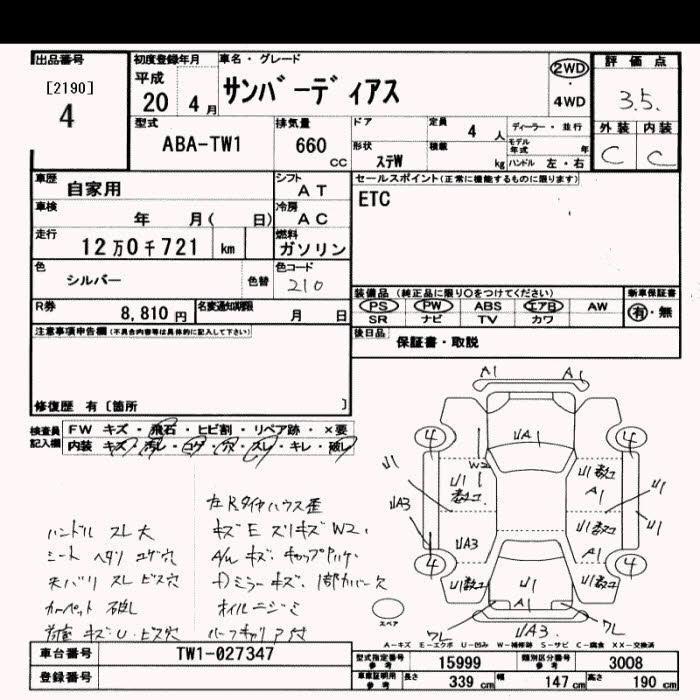 出品番号
[2190]
4
初度登録年月
平成
20 4月
車名・グレード
サンバーディアス
2WD
・
4WD
評価点
3.5.
外装 内装
C C
型式
ABA-TW1
排気量
660
cc
ドア
形状
ステW
定員
4 人
積載
kg
ディーラー・並行
モデル年式 年
ハンドル 左・右
車歴
自家用
シフト
AT
車検
年 月( 日)
冷房
AC
走行
12万0千721 km
燃料
ガソリン
色
シルバー
色替
色コード
210
R券
8,810円
名変通知期限
月 日
セールスポイント(正常に機能するものに限ります)
ETC
装備品 (純正品に限り〇をつけてください)
PS PW ABS エアB AW
SR ナビ TV カワ
新車保証書
有・無
後日品
保証書・取説
注意事項申告欄(不具合内容等は具体的に記入して下さい)
修復歴 有〔箇所 〕
検査員
記入欄
FW キズ・飛石・ヒビ割・リペア跡・×要
内装 キズ・汚レ・コゲ・穴・スレ・キレ・破レ
左Rタイヤハウス歪
ハンドル スレ大
キズE スリキズ W2.
シート ヘタリ コゲ穴
天バリ スレ ビス穴
カーペット
キズU.ビス穴
A1 A1
4 4
UA1
W2
U1
A1
UA3
U1
UA3
A1
4 4
U1
A1
ワレ ワレ
UA3.
スペア
A-キズ E-エクボ U-凹み W-補修跡 S-サビ C-腐食 XX-交換済
車台番号
TW1-027347
登録番号
型式指定番号
参考
15999
類別区分番号
参考
3008
車庫証明用
参考
長さ 339 cm 幅 147 cm 高さ 190 cm